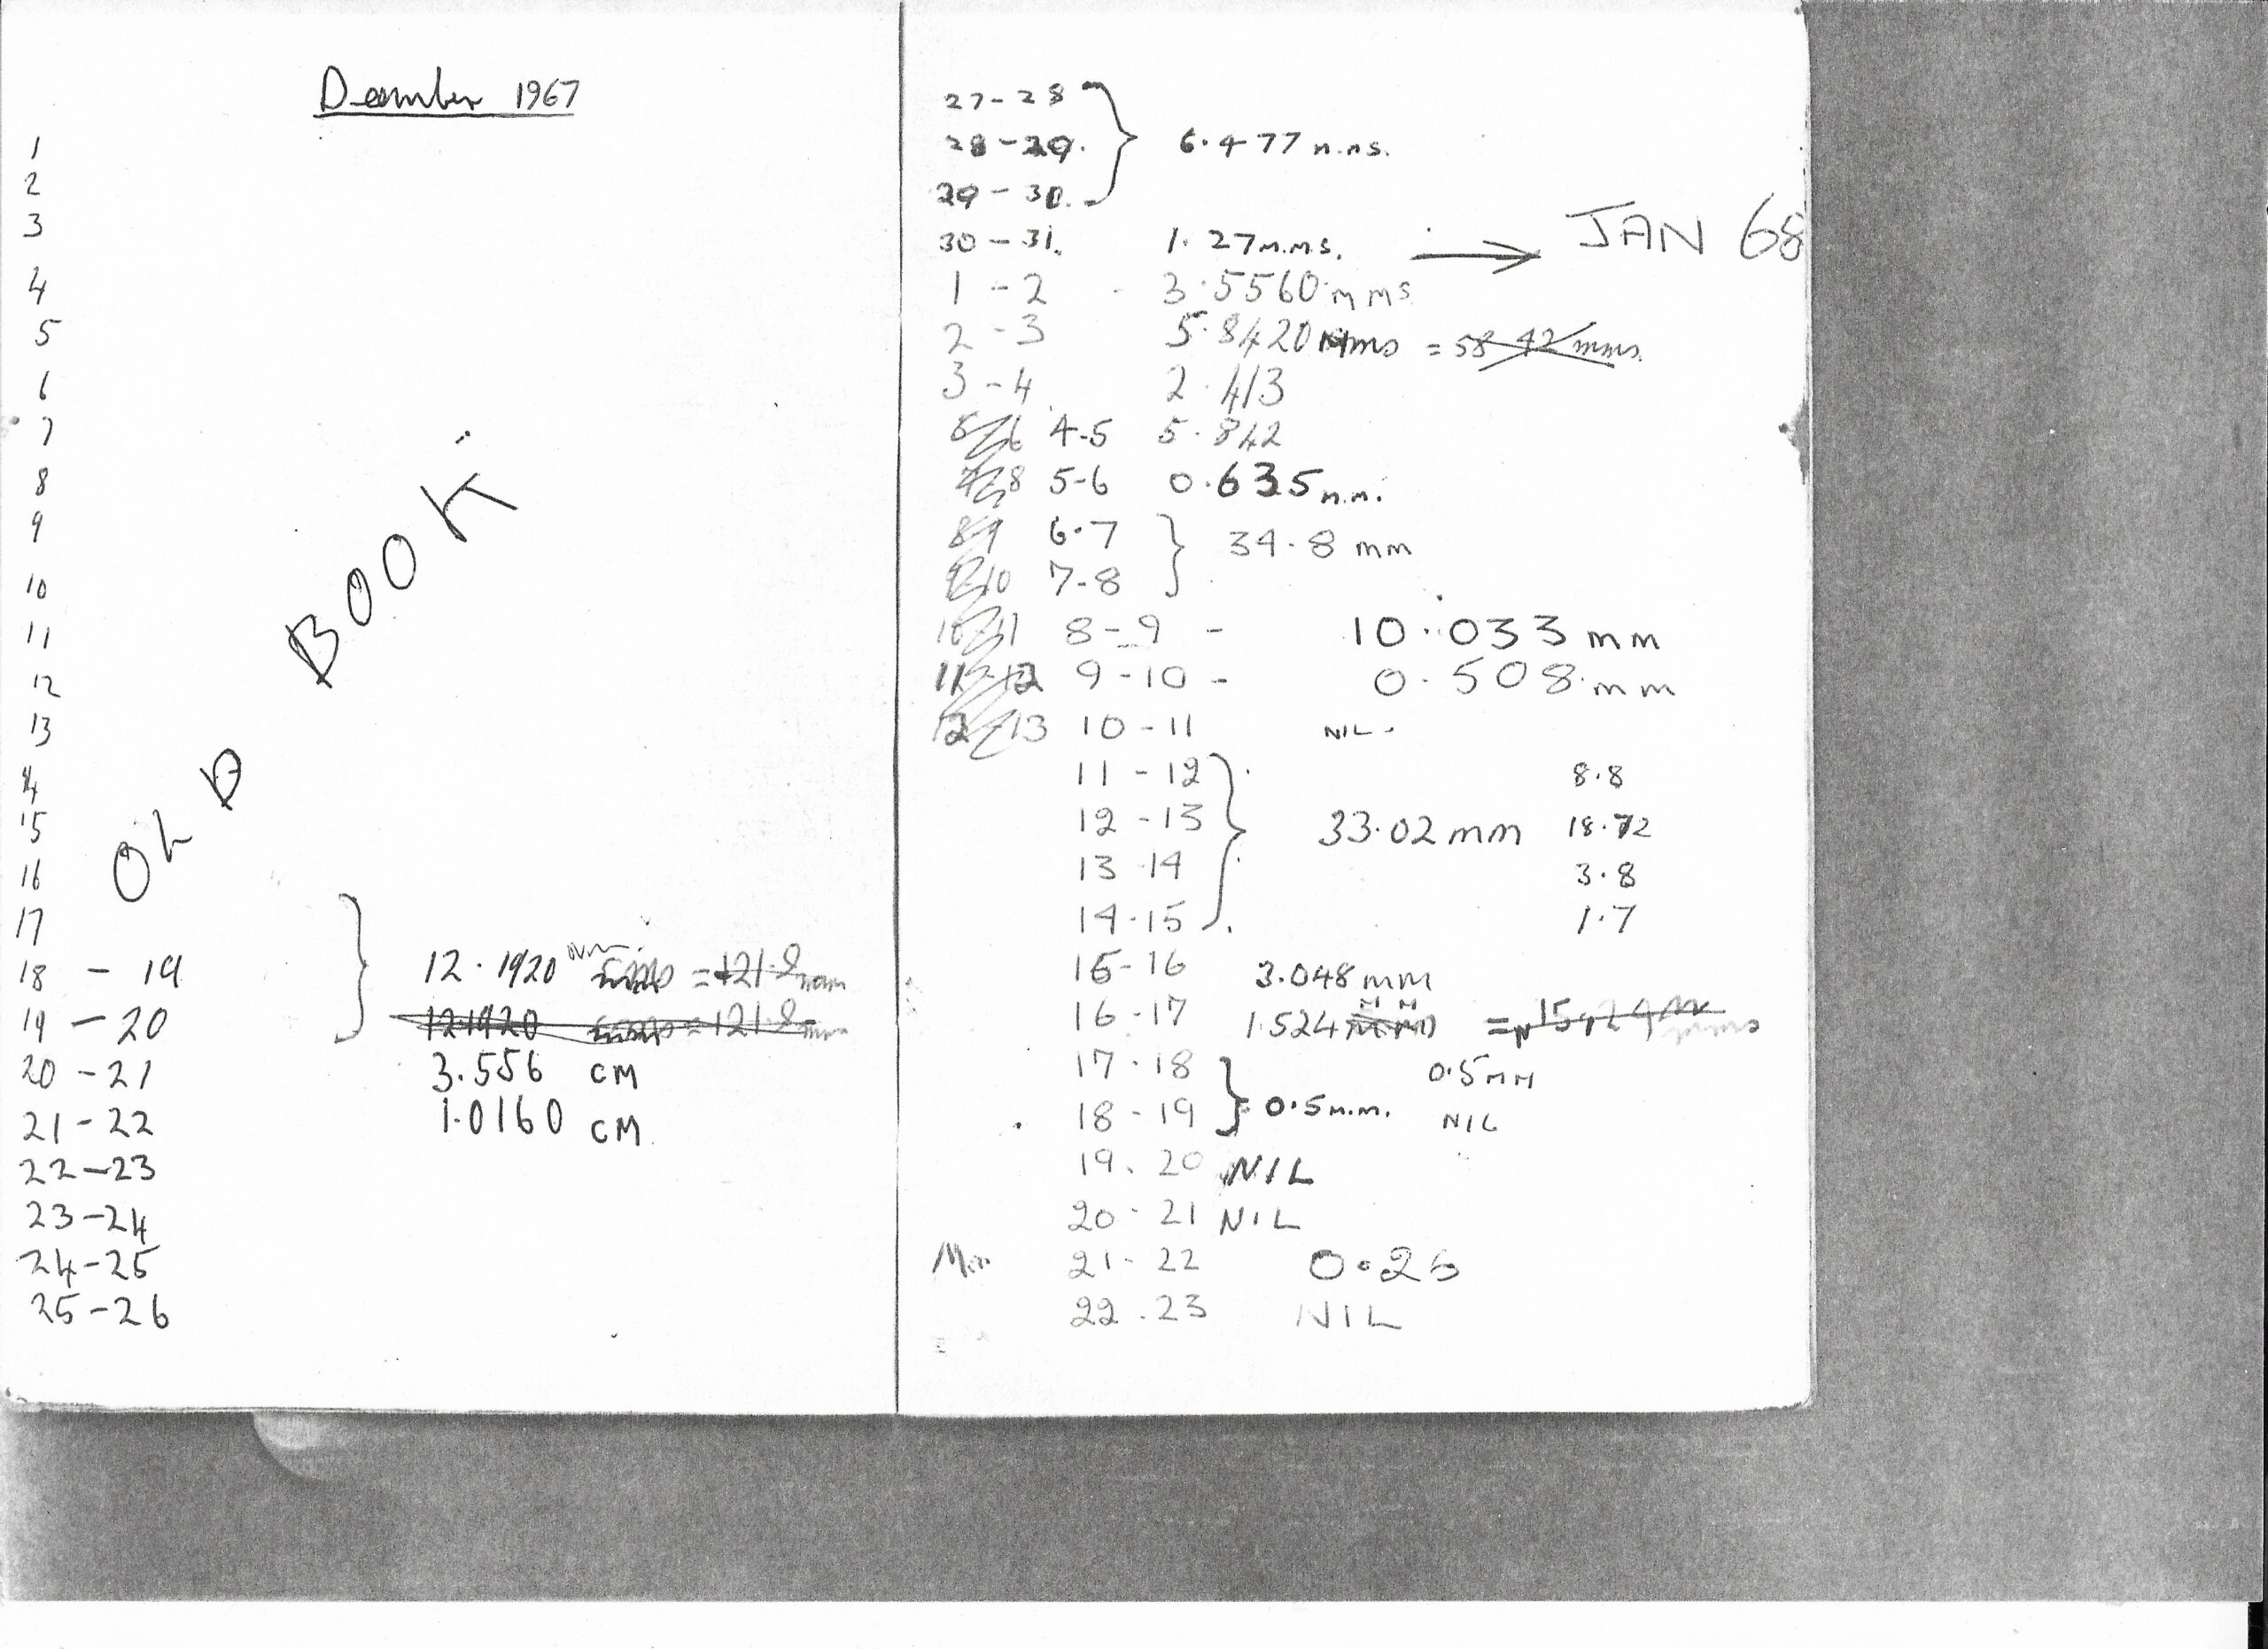 December 1967
1
2
3
4
5
6
7
8
9
10
11
12
13
14
15
16
17
OLD BOOK
18 - 19 12.1920 mm = 121.9 mm
19 - 20 12.1920 = 121.9 mm
20 - 21 3.556 CM
21 - 22 1.0160 CM
22 - 23
23 - 24
24 - 25
25 - 26
27 - 28
28 - 29. 6.477 m.ms.
29 - 30.
30 - 31. 1.27 m.ms. → JAN 68
1 - 2 - 3.5560 mms
2 - 3 5.8420 mms = 58.42 mms
3 - 4 2.413
5-6 4-5 5.842
7-8 5-6 0.635 m.m.
8-9 6.7 34.8 mm
9-10 7-8
10-11 8-9 - 10.033 mm
11-12 9-10 - 0.508 mm
12-13 10-11 NIL.
11 - 12 8.8
12 - 13 33.02 mm 18.72
13 14 3.8
14-15 1.7
15-16 3.048 mm
16-17 1.524 MM =
17-18 0.5 MM
18-19 0.5 m.m. NIL
19. 20 NIL
20 - 21 NIL
21 - 22 0.25
22.23 NIL